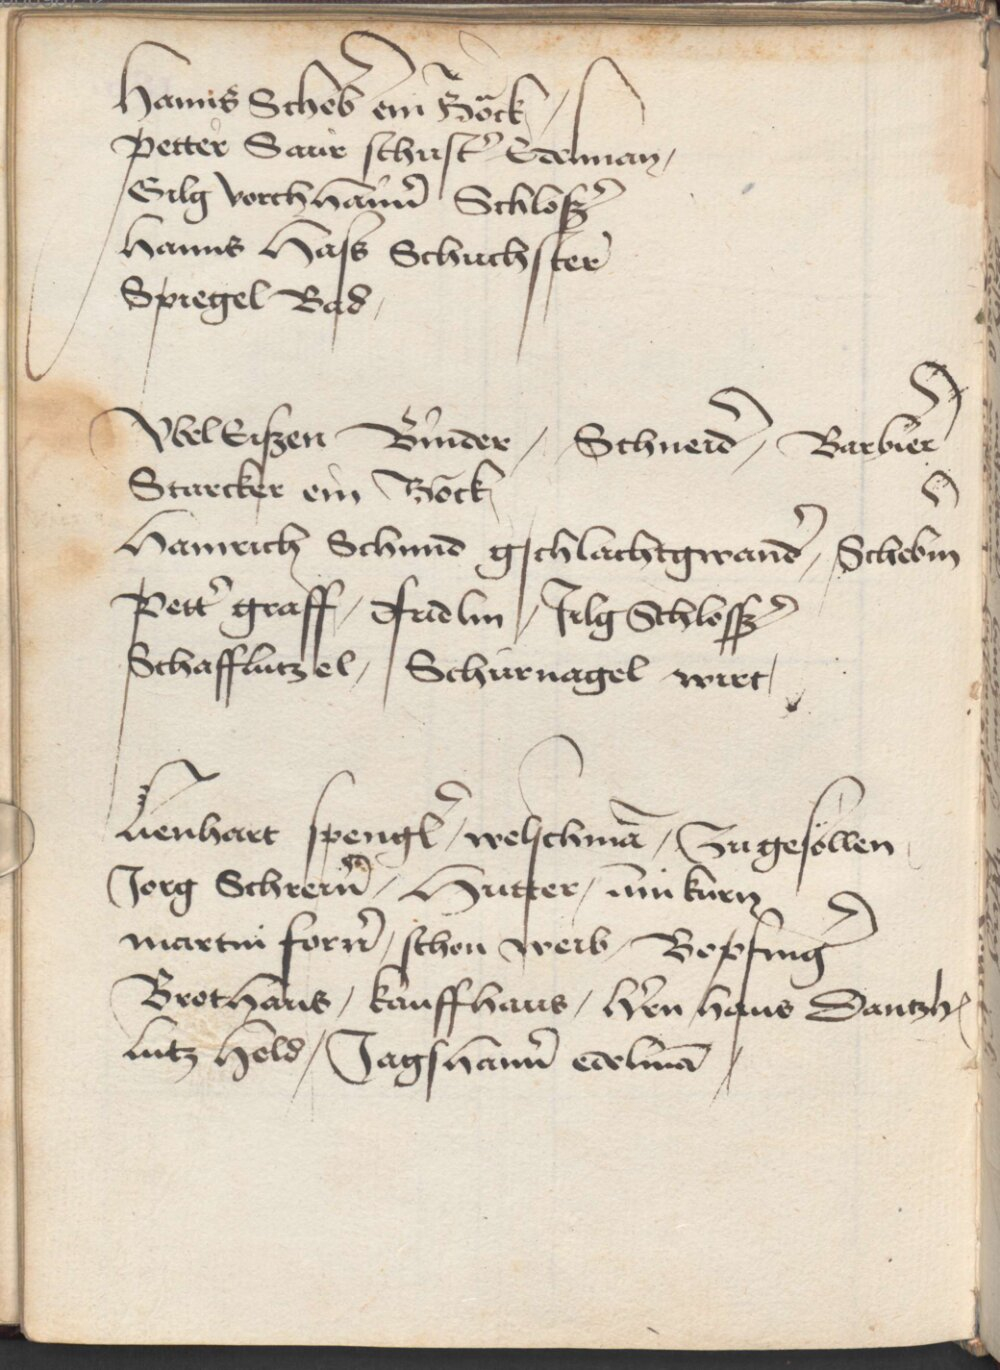 Hanns Scheb ein Böck /
Petter Saur schust' Edenman /
Gilg vorchhaim̄ Schloſz'
Hanns Haſs Schuchſter
Spiegel Bad /
Vbel Eiſzen Binder / Schneid' / Barbier
Starcker ein Böck
Hainrich Schmid gſchlachtgwand' / Schebm
Pett' graff / Fridlin / Jlg Schloſſz'
Schafflutzel / Schürnagel wirt /
Lienhart spengl' / welſchmā / Zugeſöllen
Jorg Schrein' / Hutter / kurtz
martin forn' / schon weib / Bopfing'
Brothaus / kauffhaus / h'rn haus Dantzh
lutz Held / Jagſhaim̄ edelmā /